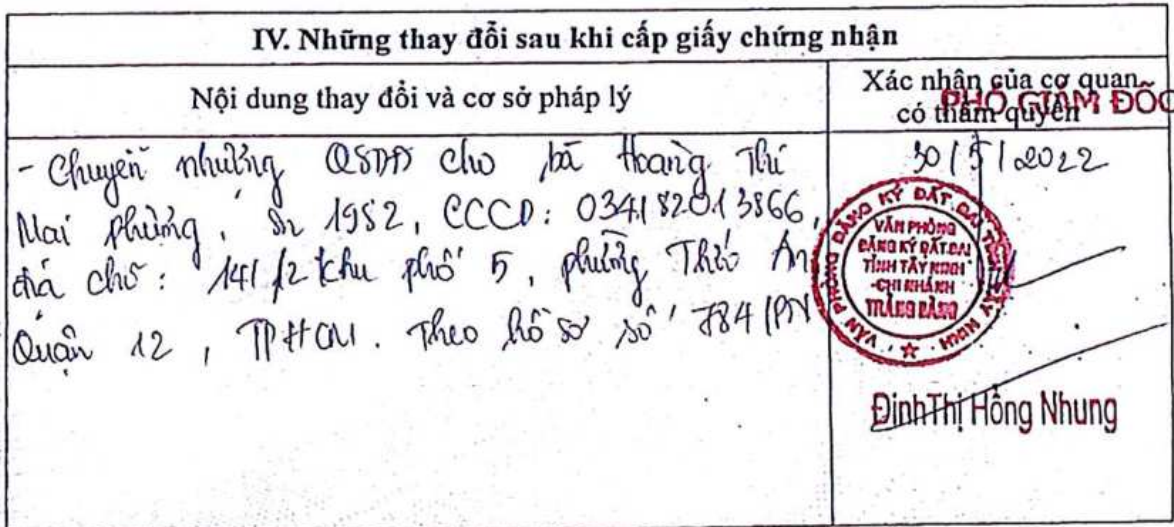 IV. Những thay đổi sau khi cấp giấy chứng nhận
Nội dung thay đổi và cơ sở pháp lý
Xác nhận của cơ quan
có thẩm quyền
PHÓ GIÁM ĐỐC
- Chuyển nhượng QSDĐ cho bà Hoàng Thị
Mai Phương, sn 1982, CCCD: 034182013866,
địa chỉ: 141/2 khu phố 5, phường Thới An
Quận 12, TPHCM. Theo hồ sơ số 784/PN
30/5/2022
VĂN PHÒNG ĐĂNG KÝ ĐẤT ĐAI TỈNH TÂY NINH
VĂN PHÒNG
ĐĂNG KÝ ĐẤT ĐAI
TỈNH TÂY NINH
-CHI NHÁNH
TRẢNG BÀNG
Đinh Thị Hồng Nhung